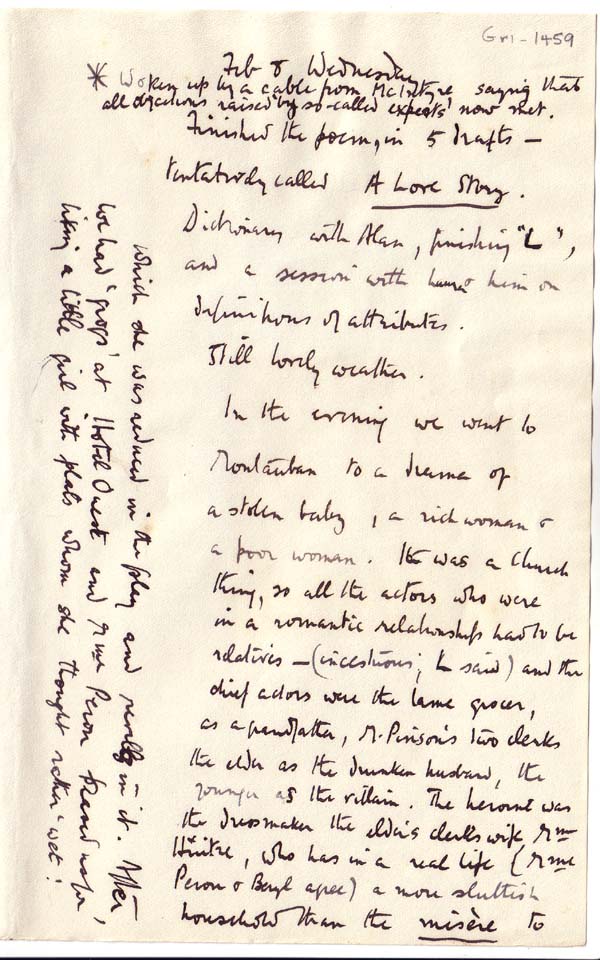 Gri - 1459
Feb 8 Wednesday
* Woken up by a cable from McIntyre saying that
all objections raised by so-called 'experts' now met.
Finished the poem, in 5 drafts —
tentatively called A Love Story.
Dictionary with Alan, finishing "L",
and a session with him on
definitions of attributes.
Still lovely weather.
In the evening we went to
Montauban to a drama of
a stolen baby, a rich woman &
a poor woman. It was a Church
thing, so all the actors who were
in a romantic relationship had to be
relatives — (incestuous; L said) and the
chief actors were the lame grocer,
as a grandfather, M. Pinson's two clerks
the elder as the drunken husband, the
younger as the villain. The heroine was
the dressmaker the elder's clerk's wife, Mme
who has in a real life (Mme
Peron & Beryl agree) a more sluttish
household than the misère to
which she was reduced in the play and in it. After,
we had 'grogs' at Hotel Ouest and Mme Peron us for
liking a little girl with plaits whom she thought rather 'wet'!